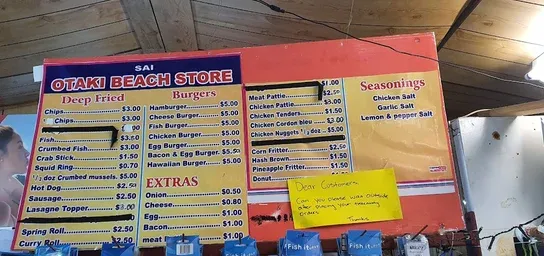 SAI
OTAKI BEACH STORE
Deep Fried
Chips $3.00
Chips
Fish $3.50
Crumbed Fish $3.00
Crab Stick $1.50
Squid Ring $0.70
1/2 doz Crumbed mussels. $5.00
Hot Dog $2.50
Sausage $2.50
Lasagne Topper $3.00
Spring Roll $2.50
Curry Roll $2.50
Burgers
Hamburger $5.00
Cheese Burger $5.00
Fish Burger $5.00
Chicken Burger $5.00
Egg Burger $5.00
Bacon & Egg Burger $5.50
Hawaiian Burger $5.00
EXTRAS
Onion $0.50
Cheese $0.80
Egg $1.00
Bacon $1.00
meat $1.00
$1.00
Meat Pattie $2.50
Chicken Pattie $3.00
Chicken Tenders $1.50
Chicken Cordon bleu $3.00
Chicken Nuggets 1/2 doz $5.00
Corn Fritter $2.50
Hash Brown $1.50
Pineapple Fritter $1.50
Donut
Seasonings
Chicken Salt
Garlic Salt
Lemon & pepper Salt
Dear Customers
Can you please wait outside
after placing your takeaway
orders
Thanks
Fish it
Fish it